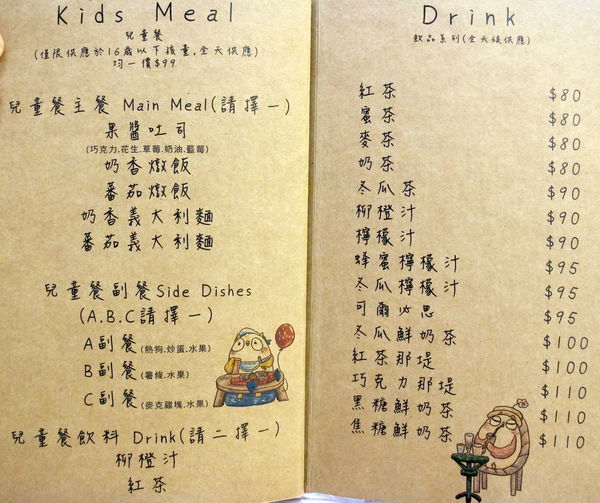 Kids Meal
兒童餐
(僅限供應於16歲以下孩童,全天供應)
均一價$99
兒童餐主餐 Main Meal(請擇一)
果醬吐司
(巧克力.花生.草莓.奶油.藍莓)
奶香燉飯
蕃茄燉飯
奶香義大利麵
蕃茄義大利麵
兒童餐副餐Side Dishes
(A.B.C請擇一)
A副餐(熱狗.炒蛋.水果)
B副餐(薯條.水果)
C副餐(麥克雞塊.水果)
兒童餐飲料 Drink(請二擇一)
柳橙汁
紅茶
Drink
飲品系列(全天候供應)
紅茶 $80
蜜茶 $80
麥茶 $80
奶茶 $80
冬瓜茶 $90
柳橙汁 $90
檸檬汁 $90
蜂蜜檸檬汁 $95
冬瓜檸檬汁 $95
可爾必思 $95
冬瓜鮮奶茶 $100
紅茶那堤 $100
巧克力那堤 $110
黑糖鮮奶茶 $110
焦糖鮮奶茶 $110